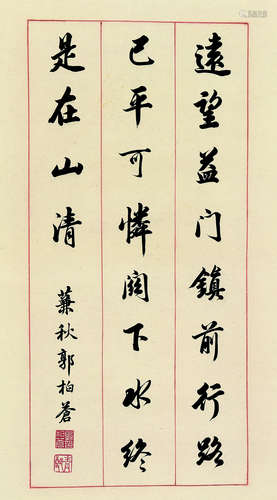 遠望益门鎮前行路
已平可憐閣下水終
是在山清
蒹秋郭柏蒼